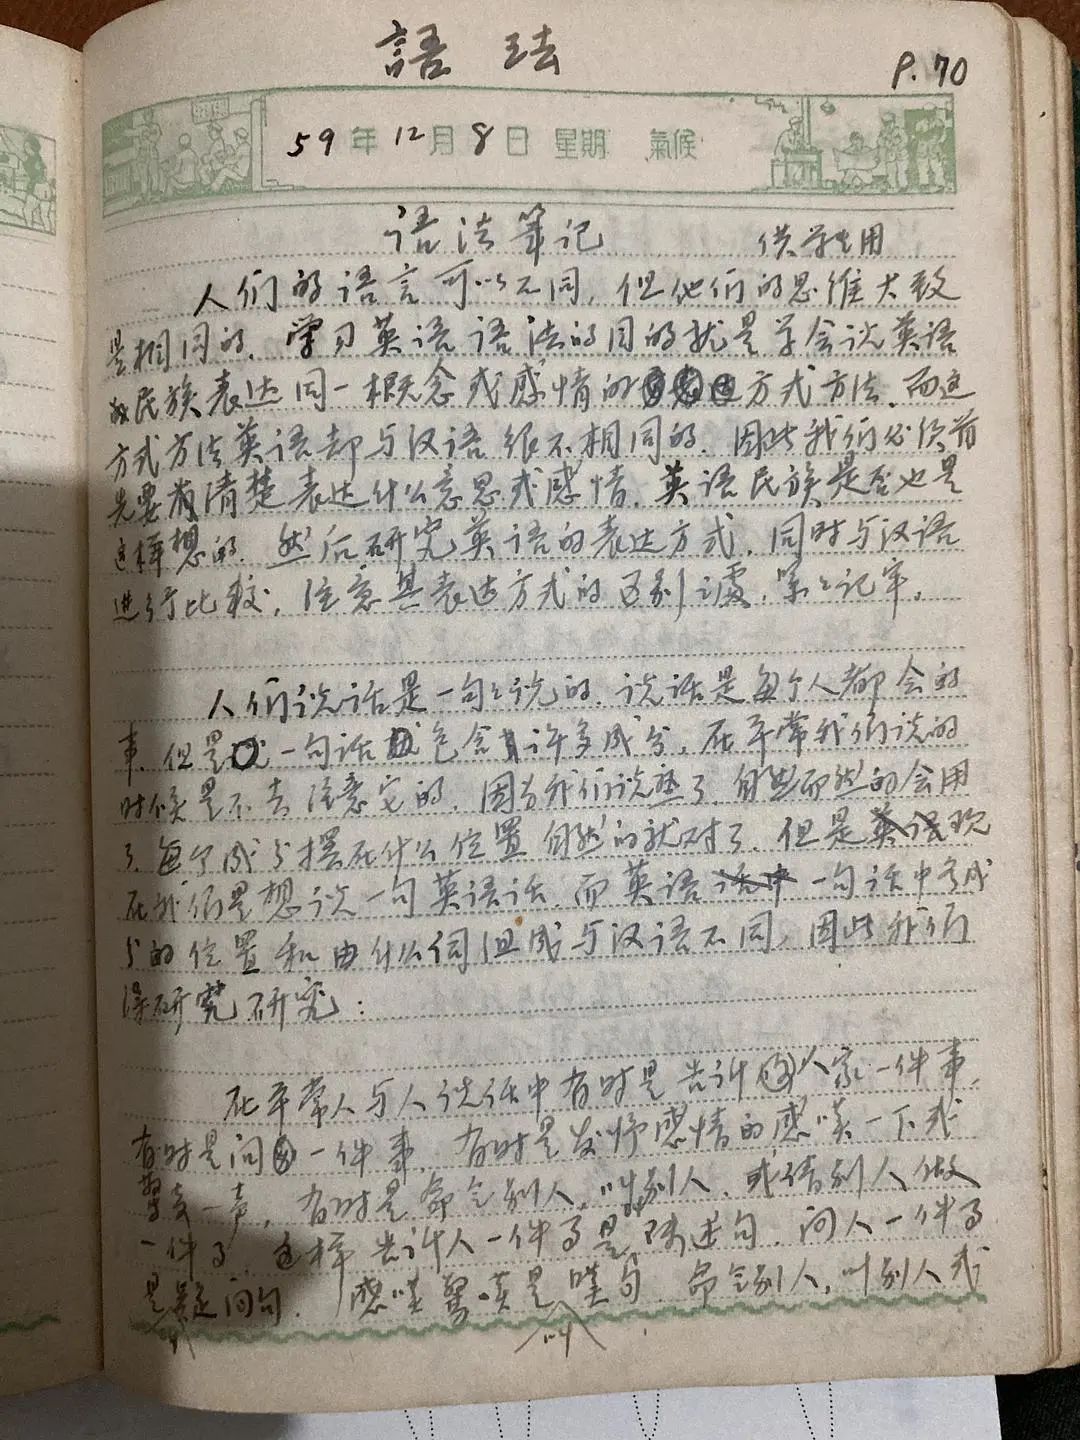 語法
P.70
59年12月8日 星期 氣候
语法笔记 供学生用
人们的语言可以不同,但他们的思维大致
是相同的.学习英语语法的目的就是学会说英语
的民族表达同一概念或感情的方式方法.而这
方式方法英语却与汉语很不相同的.因此我们必须首
先要清楚表达什么意思或感情.英语民族是否也是
这样想的.然后研究英语的表达方式.同时与汉语
进行比较,注意其表达方式的区别之處.紧紧记牢.
人们说话是一句句说的.说话是每个人都会的
事.但是一句话包含许多成分,在平常我们说的
时候是不去注意它的.因为我们说熟了.自然而然的会用
了.每个成分摆在什么位置自然的就对了.但是现
在我们是想说一句英语话.而英语一句话中各成
分的位置和由什么词组成与汉语不同,因此我们
得研究研究:
在平常人与人说话中有时是告诉人家一件事.
有时是问一件事.有时是发抒感情的感叹一下或
惊一声,有时是命令别人,叫别人.或请别人做
一件事.这样告诉人一件事是陈述句.问人一件事
是疑问句.感叹惊是叹句.命令别人,叫别人或
叫